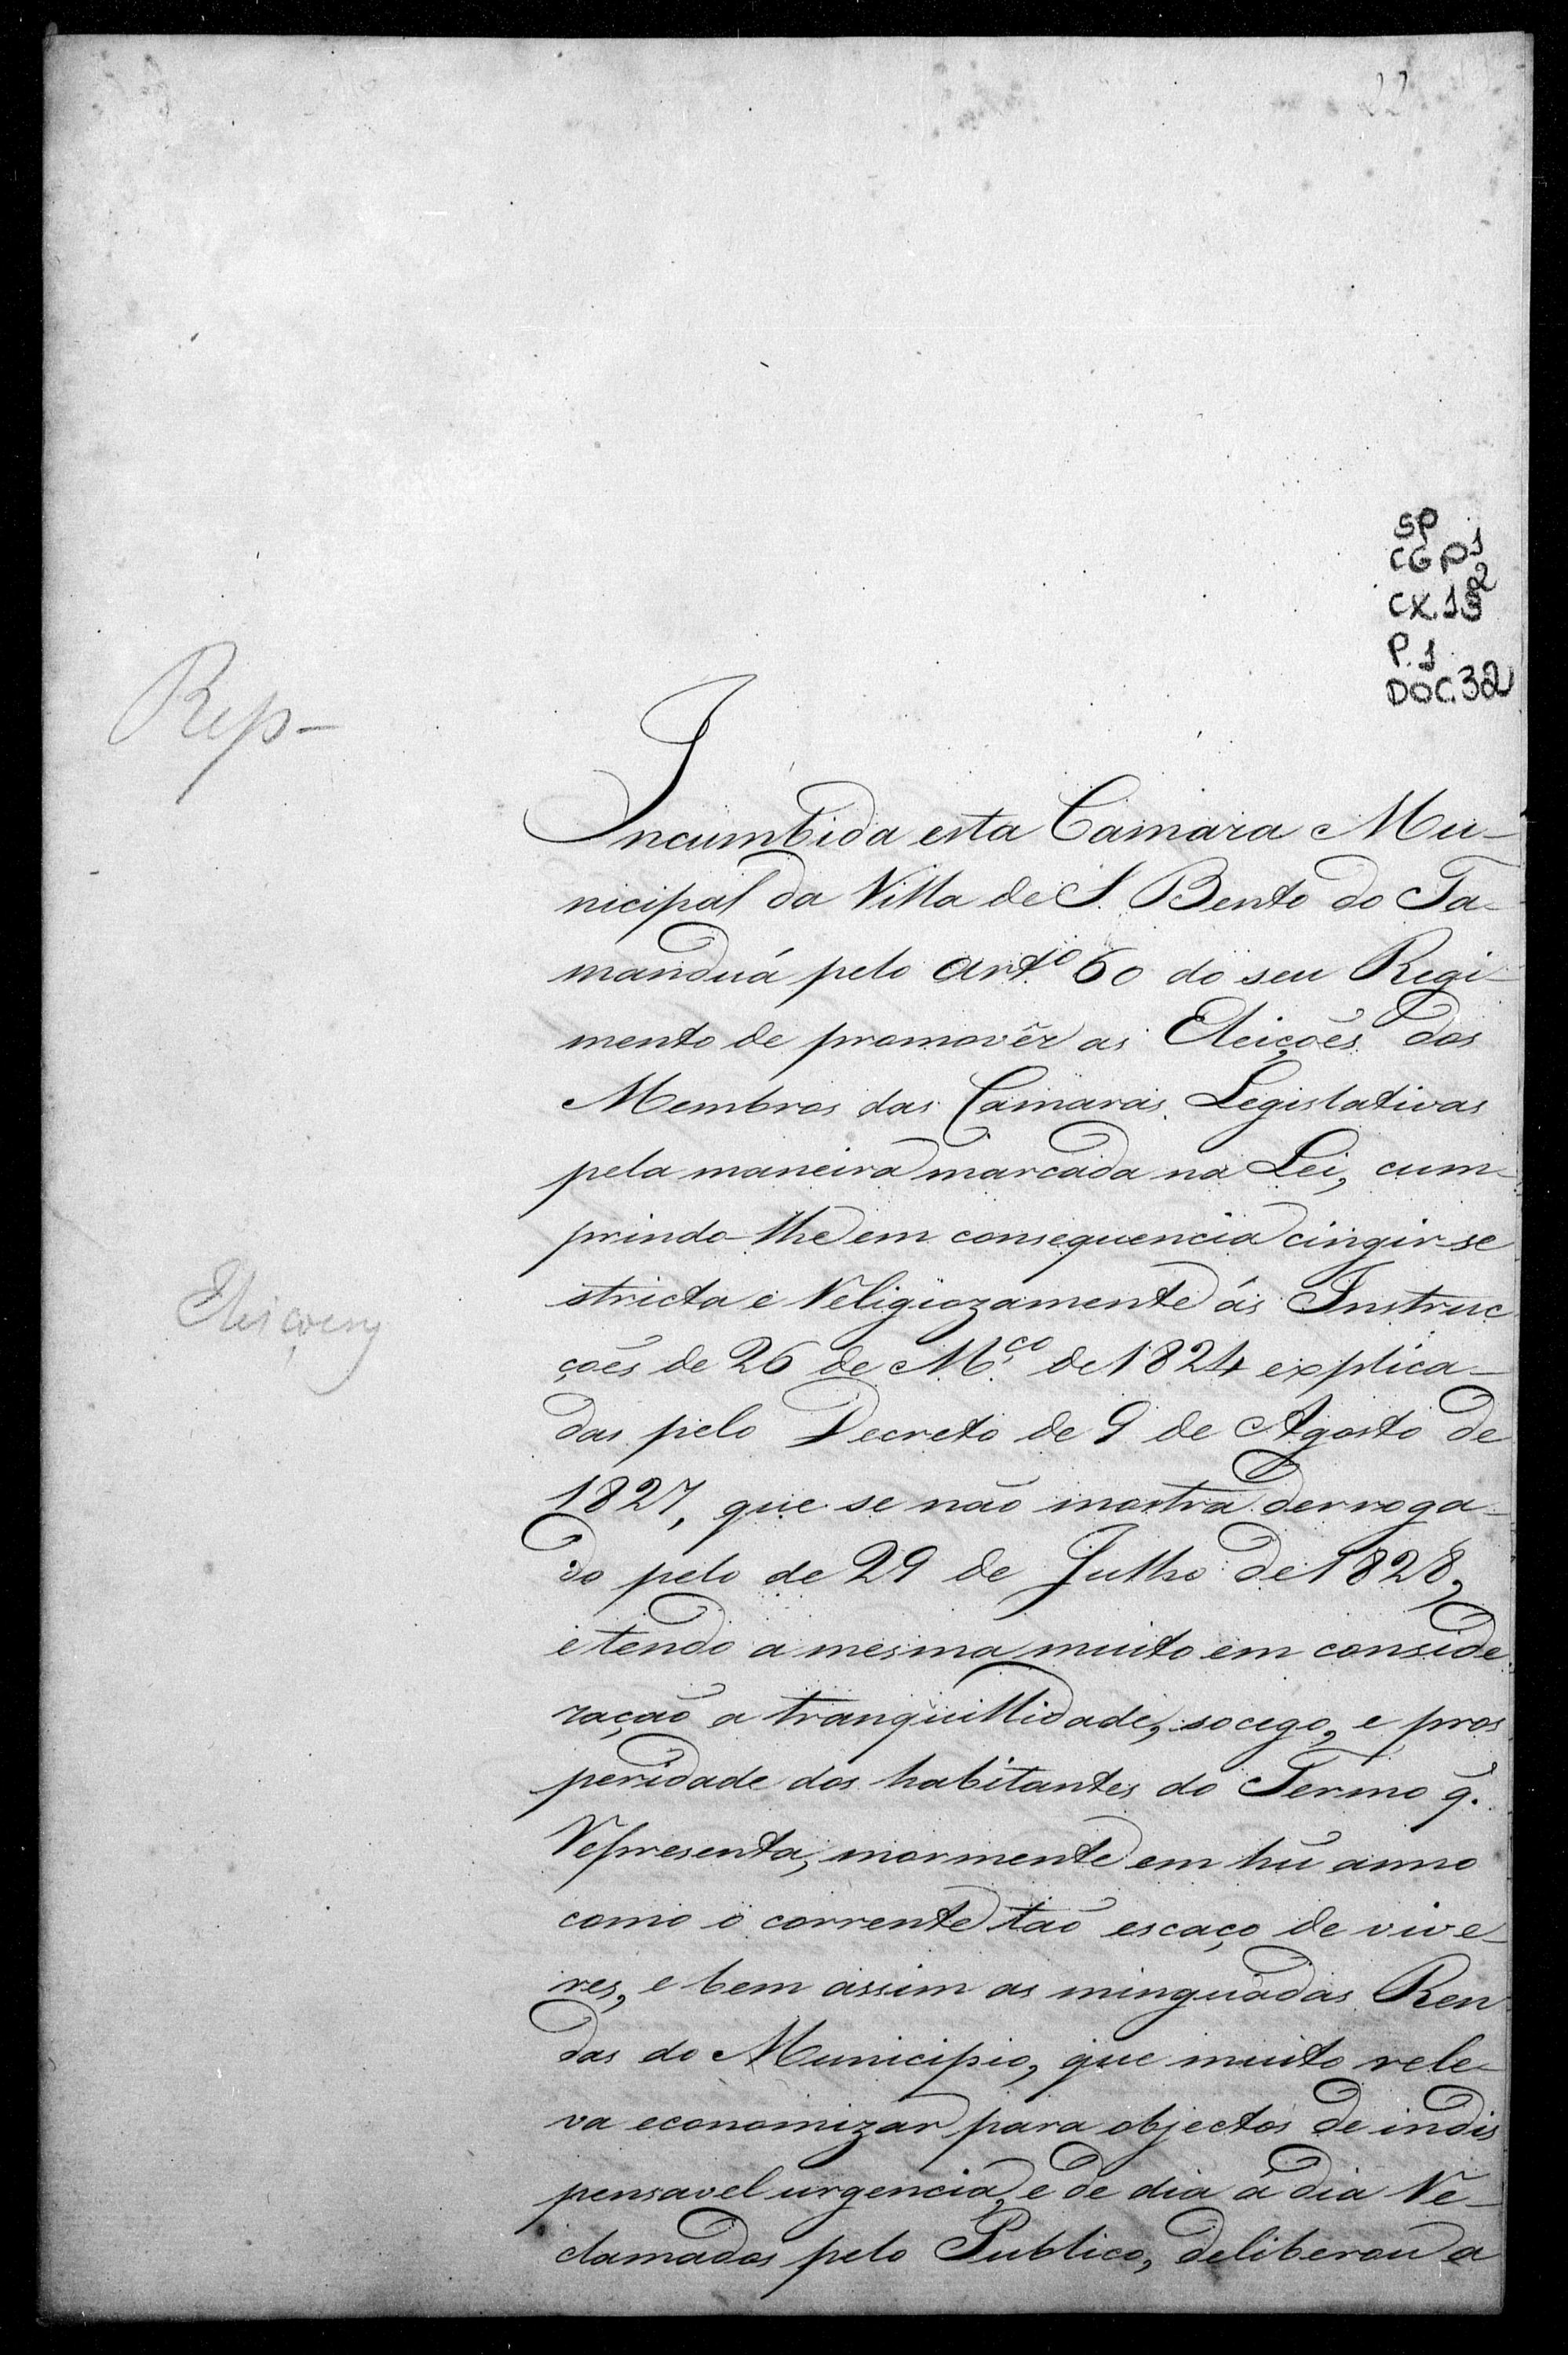 22
SP
CGP1
CX.152
P.1
DOC.32
Rep-
Incumbida esta Camara Mu-
nicipal da Villa de S. Bento do Ta-
manduá pelo Artº 60 do seu Regi-
mento de promovêr as Eleições dos
Membros das Camaras Legislativas
pela maneira marcada na Lei, cum-
prindo-lhe em consequencia cingir-se
stricta e Religiozamente ás Instruc
ções de 26 de M.ço de 1824 explica-
das pelo Decreto de 9 de Agosto de
1827, que se não mostra derroga-
do pelo de 29 de Julho de 1828,
e tendo a mesma muito em conside
ração a tranquillidade, socego, e pros
peridade dos habitantes do Termo q̃.
Representa, mormente em hũ anno
como o corrente tão escaço de vive-
res, e bem assim as minguadas Ren
das do Municipio, que muito rele-
va economizar para objectos de indis
pensavel urgencia, e de dia á dia Re-
clamados pelo Publico, deliberou a
Eleiçoens